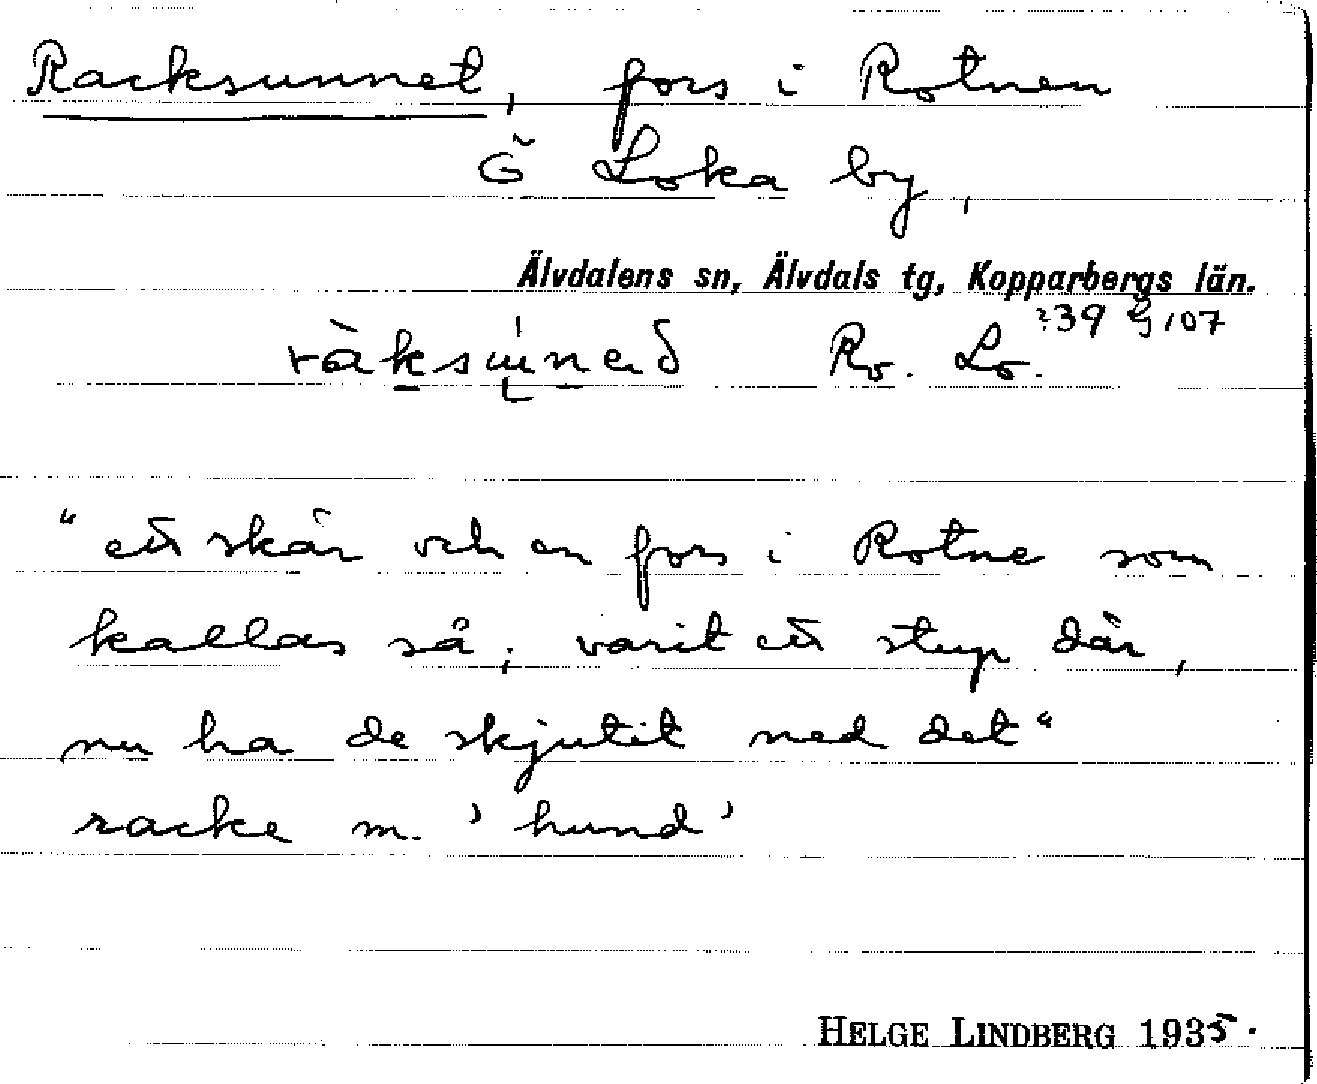 Racksunnet, fors i Rotnen
Ö Loka by,
Älvdalens sn, Älvdals tg, Kopparbergs län.
239 G 107
Ro. Lo.
"ett skär och en fors i Rotne som
kallas så; varit ett stup där,
nu ha de skjutit ned det"
racke m. 'hund'
HELGE LINDBERG 1935.